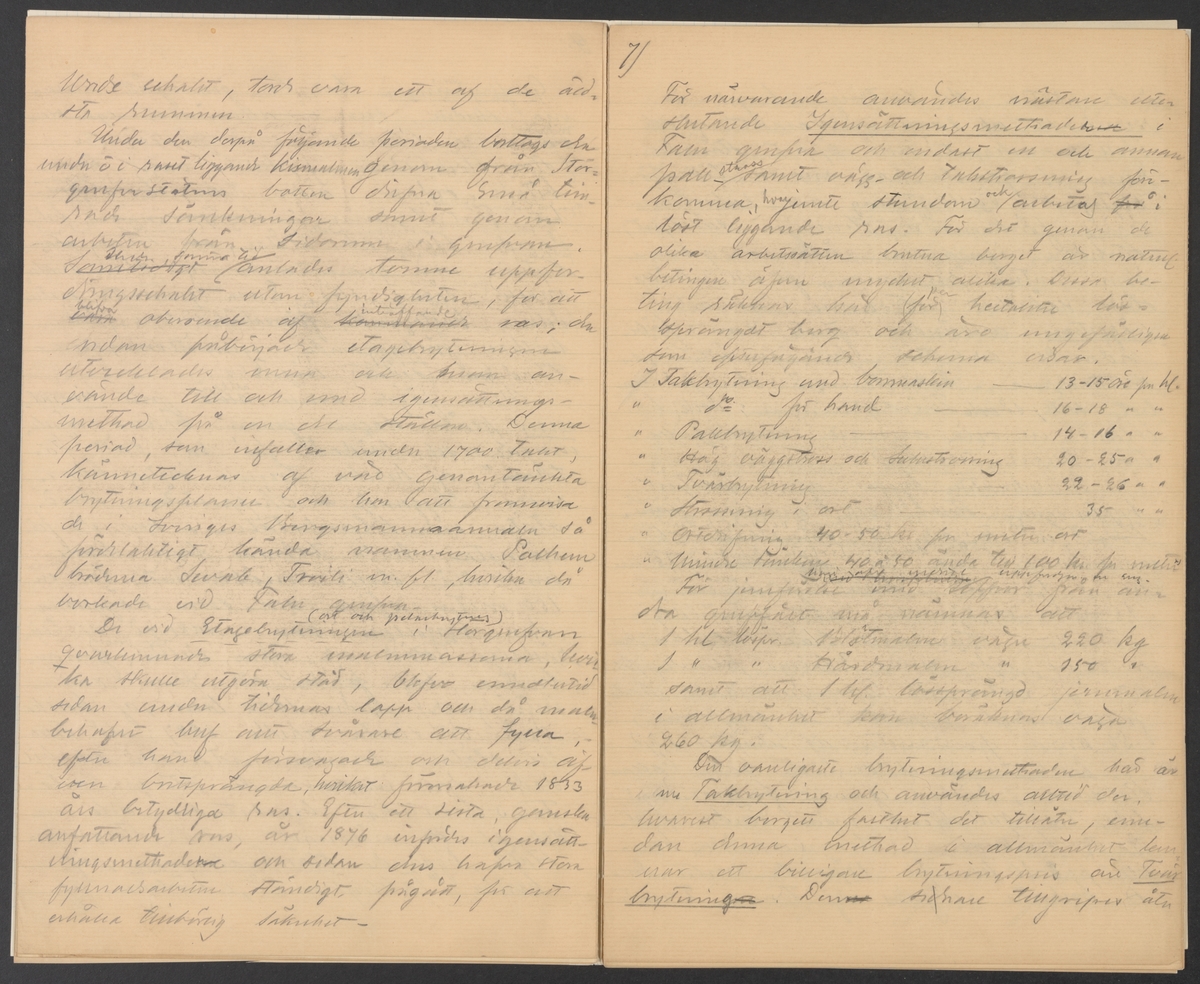 schakt, torde vara ett af de äld-
sta rummen
Under den derpå följande perioden borttogs den
under ö i raset liggande kismalmen genom från Stor-
grufve stötens botten drifna små tim-
rade sänkningar samt genom
arbeten från sidorna i grufvan.
anlades tvenne uppfor-
dringsschakt utom fyndigheten, för att
blifva oberoende af inträffande ras; den
sedan påbörjade etagebrytningen
utvecklades mera och kom an-
vände till och med igensättnings-
method på en del ställen. Denna
period, som infaller under 1700 talet,
kännetecknas af väl genomtänkta
brytningsplaner och har att framvisa
de i Sveriges Bergsmannaannaler så
fördelaktigt kända namnen Polhem
bröderna Swab, Troili m. fl. hvilka då
verkade vid Falu grufva.
De vid Etagebrytningen (ort och pelarbrytning) i Storgrufvan
qvarlemnade stora malmmassorna, hvil-
ka skulle utgöra stöd, blefvo emellertid
sedan under tidernas lopp och då malm-
behofvet blef allt svårare att fylla,
efter hand försvagade och delvis äf-
ven bortsprängda, hvilket förorsakade 1833
års betydliga ras. Efter ett sista, ganska
omfattande ras, år 1876 infördes igensätt-
ningsmethoden och sedan dess hafva stora
fyllnadsarbeten ständigt pågått, för att
erhålla tillbörlig säkerhet –
7/
För närvarande användes nästan ute-
slutande Igensättningsmethoden i
Falu grufva och endast en och annan
pall strossning samt vägg- och takstrossning före-
komma, hvarjemte stundom och arbetas i
löst liggande ras. För det genom de
olika arbetssätten brutna berget är naturl.
betingen äfven mycket olika. Dessa be-
ting räknas här per hectoliter lös-
sprängdt berg och äro ungefärligen
som efterföljande schema visar.
I Takbrytning med borrmaskin — 13-15 öre per hl.
" do för hand — 16-18 " "
" Pallbrytning — 14-16 " "
" Hög väggstross och takstrossning 20-25 " "
" Tvärbrytning — 22-26 " "
" Strossning i ort — 35 " "
" Ortdrifning 40-50 kr per meter ort
" Mindre sänkning 40 à 50 ända till 100 kr per meter
För jemförelse med uppgifter från an-
dra gruffält må nämnas att
1 hl lösspr. blötmalm väger 220 kg
1 " " Hårdmalm " 150 "
samt att 1 hl. lössprängd jernmalm
i allmänhet kan beräknas väga
260 kg.
Den vanligaste brytningsmethoden här är
nu Takbrytning och användes alltid der,
hvarest bergets fasthet det tillåter, eme-
dan denna method i allmänhet lem-
nar ett billigare brytningspris än Tvär-
brytning. Denna sednare tillgripes åter